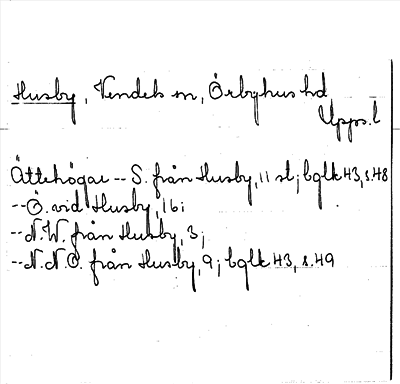 Husby, Vendels sn, Örbyhus hd
Upps. l
Ättehögar -- S. från Husby, 11 st; bglk 43, s. 48
-- Ö. vid Husby, 16;
-- N.W. från Husby, 3;
-- N.N.O. från Husby, 9; bglk 43, s. 49